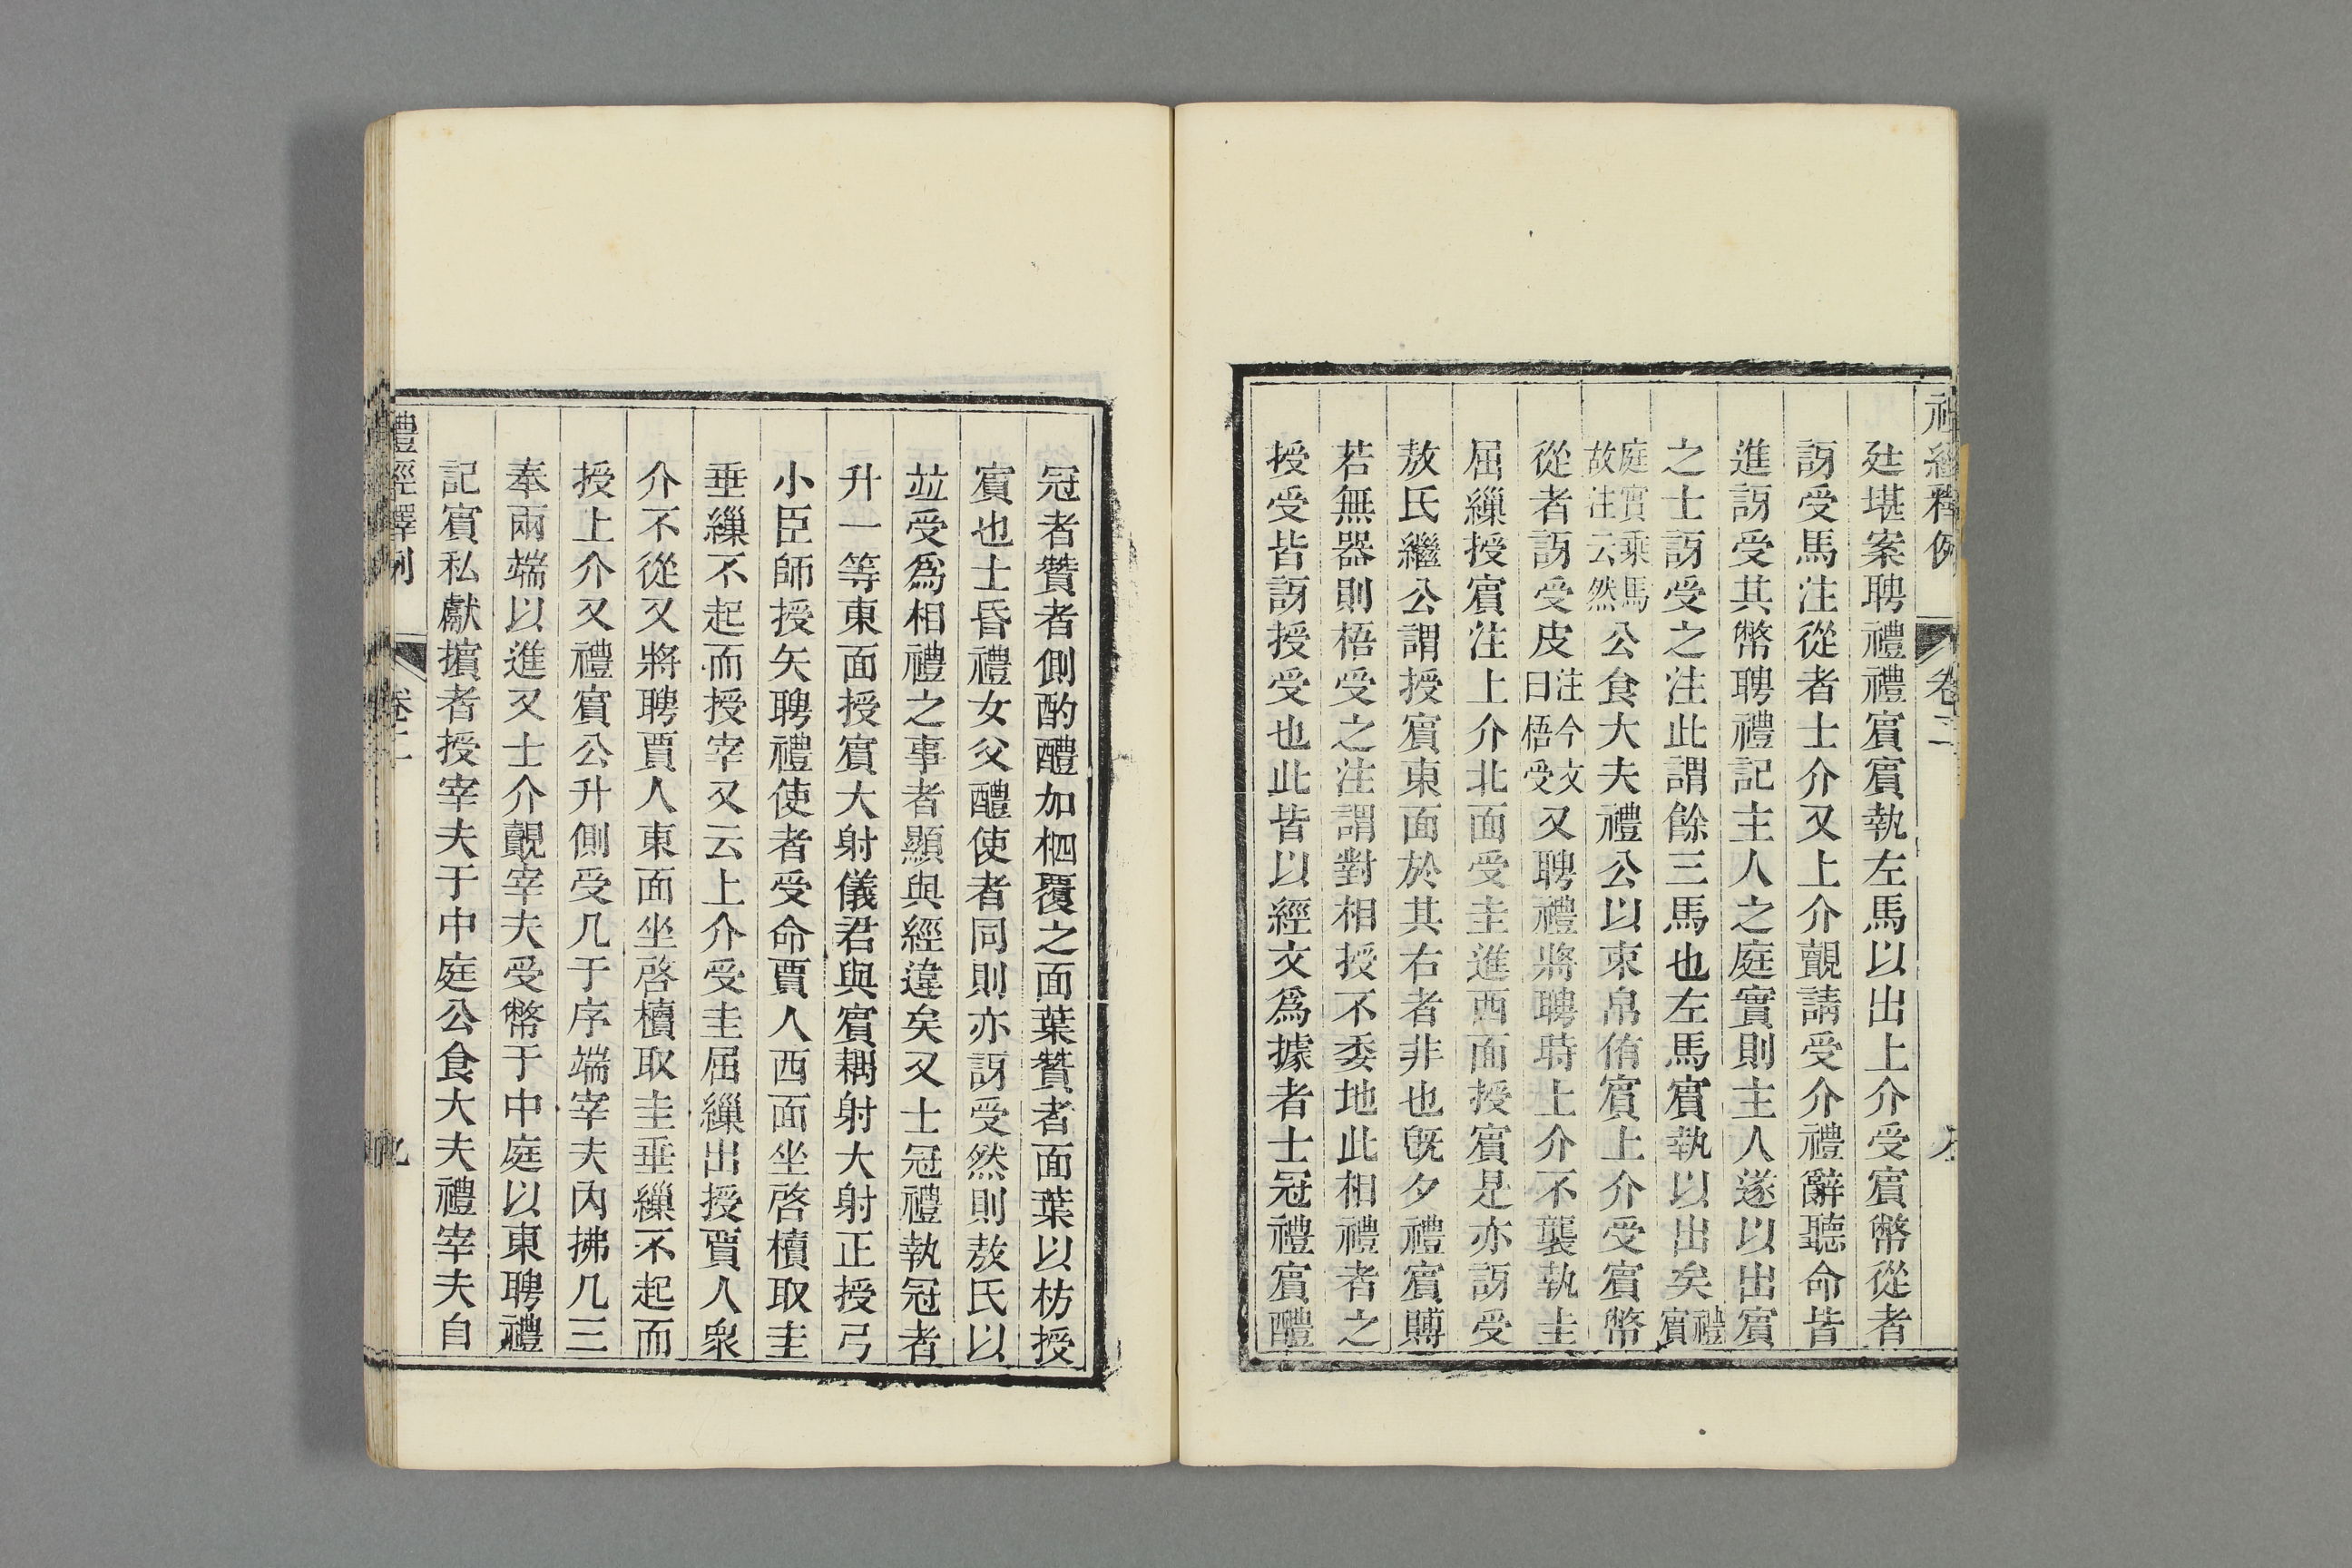 禮經釋例 卷二
廷堪案聘禮禮賓賓執左馬以出上介受賓幣從者
訝受馬注從者士介又上介覿請受介禮辭聽命皆
進訝受其幣聘禮記主人之庭實則主人遂以出賓
之士訝受之注此謂餘三馬也左馬賓執以出矣禮賓
庭實乘馬故注云然公食大夫禮公以束帛侑賓上介受賓幣
從者訝受皮注今文曰梧受又聘禮將聘時上介不襲執圭
屈繅授賓注上介北面受圭進西面授賓是亦訝受
敖氏繼公謂授賓東面於其右者非也旣夕禮賓賻
若無器則梧受之注謂對相授不委地此相禮者之
授受皆訝授受也此皆以經文爲據者士冠禮賓醴
冠者贊者側酌醴加柶覆之面葉贊者面葉以枋授
賓也士昏禮女父醴使者同則亦訝受然則敖氏以
竝受爲相禮之事者顯與經違矣又士冠禮執冠者
升一等東面授賓大射儀君與賓耦射大射正授弓
小臣師授矢聘禮使者受命賈人西面坐啓櫝取圭
垂繅不起而授宰又云上介受圭屈繅出授賈人衆
介不從又將聘賈人東面坐啓櫝取圭垂繅不起而
授上介又禮賓公升側受几于序端宰夫內拂几三
奉兩端以進又士介覿宰夫受幣于中庭以東聘禮
記賓私獻擯者授宰夫于中庭公食大夫禮宰夫自
禮經釋例 卷二 九